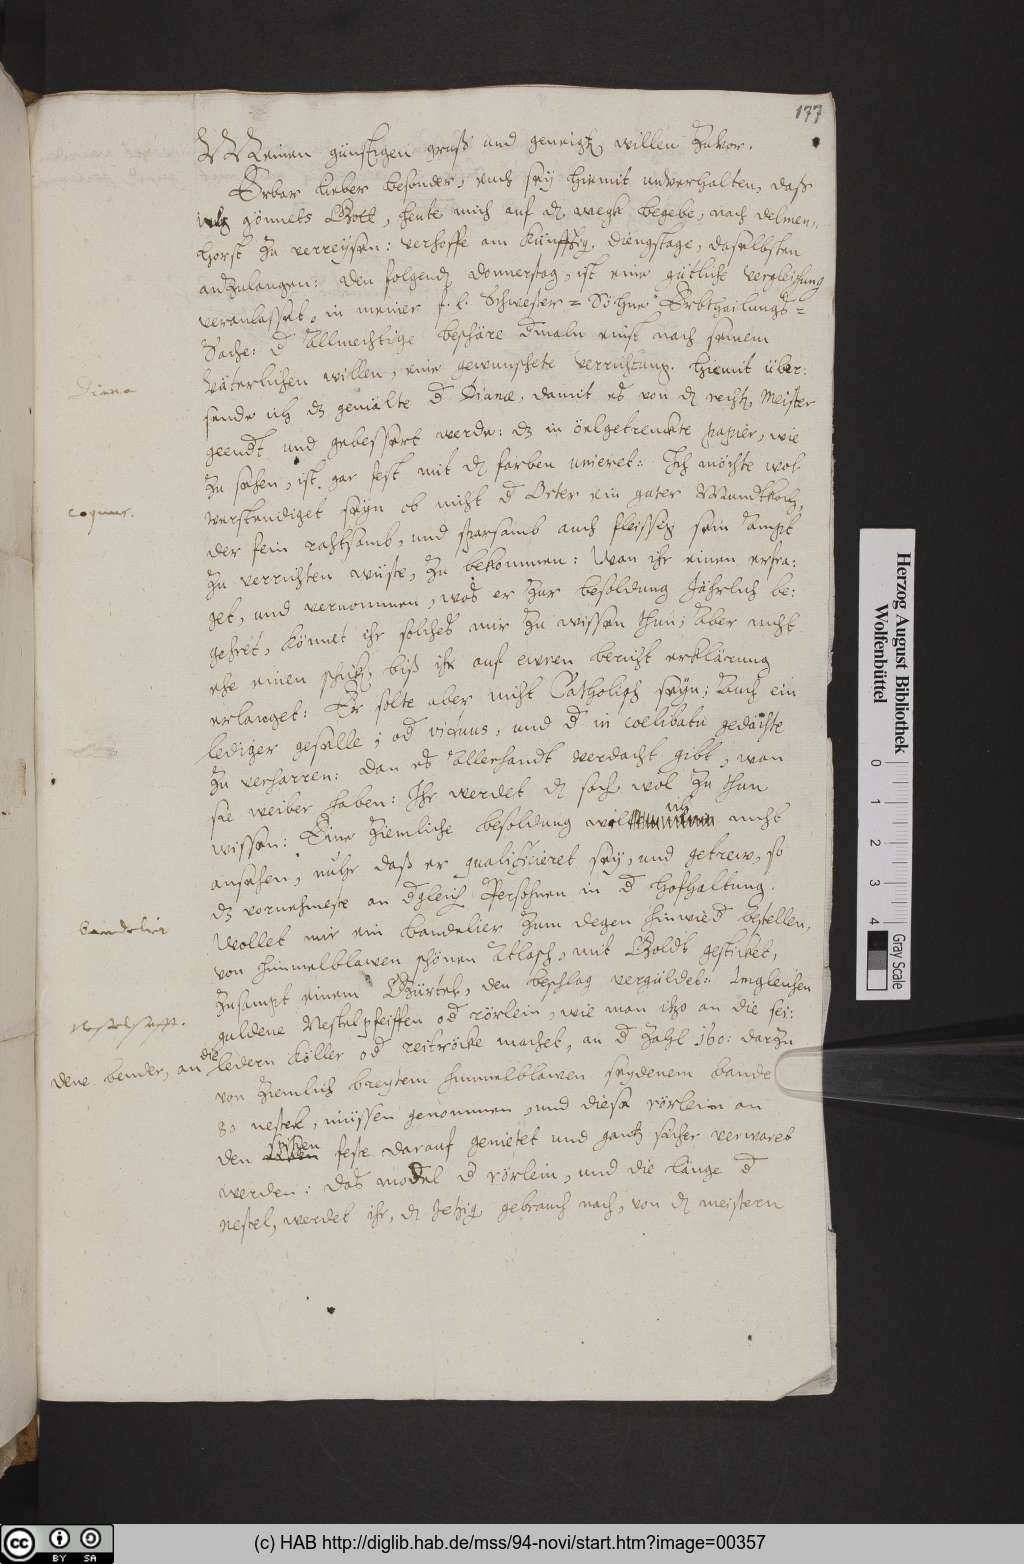 177
Meinen günstigen gruß und geneigt. willen zuvor.
Erbar lieber besonder, euch sey hiemit unverhalten, daß
ich, gönnets Gott, heute mich auf den wegk begebe, nach Delmen-
horst zu verreysen: verhoffe am künfftig. Dingstage, daselbsten
anzulangen: den folgend. Donnerstag, ist eine gütliche vergleichung
veranlasset, in meiner f. l. Schwester = Söhne Erbtheilungs =
Sache: d Allmechtige beschäre dmaln einst nach seinem
Diana
Väterlichen willen, eine gewünschete verrichtung. Hiemit über:
sende ich dz gemälte d Dianæ, damit es von dem recht. Meister
geendt und gebessert werde: dz in öelgetrenkte papier, wie
zu sehen, ist gar fest mit den farben
Ich möchte wol
coquus.
verstendiget seyn ob nicht d Orter ein guter Mundtkoch,
der fein rahtsamb, und sparsamb auch fleissig sein Ampt
zu verrichten wüste, zu bekommen: Wan ihr einen erfra:
get, und vernommen, was er zur besoldung Jährlich be:
gehret, könnet ihr solches mir zu wissen thun; Aber nicht
ehe einen schick., biß ihr auf ewren bericht erklärung
erlanget: Er solte aber nicht Catholisch seyn; Auch ein
lediger geselle; od viduus, und d in coelibatu gedächte
zu verharren: dan es Allerhandt verdacht gibt, wan
sie weiber haben: Ihr werdet den sach. wol zu thun
wissen: Eine ziemliche besoldung wil ich nicht
ansehen, nuhr daß er qualificieret sey, und getrew, so
dz vornehmeste an dgleich. Persohnen in d Hofhaltung.
bandelier
Wollet mir ein bandelier zum degen hinwied bestellen,
von himmelblawen schönen Atlasch, mit Goldt gesticket,
zusampt einem Gürtel, den beschlag vergüldet: Imgleichen
guldene Nestelpfeiffen od rörlein, wie man itzo an die sei:
dene bender, an die ledern köller od reitröcke machet, an d Zahl 160: darzu
von ziemlich breytem himmelblawen seydenem bande
80 nestel, müssen genommen, und diese rörlein an
den spitzen feste darauf genietet und gantz sicher verwaret
werden: das model d rörlein, und die länge d
Nestel, werdet ihr, den jetzig. gebrauch nach, von den meistern
Herzog August Bibliothek
Wolfenbüttel
0 1 2 3 4
Gray Scale
cc BY SA
(c) HAB http://diglib.hab.de/mss/94-novi/start.htm?image=00357